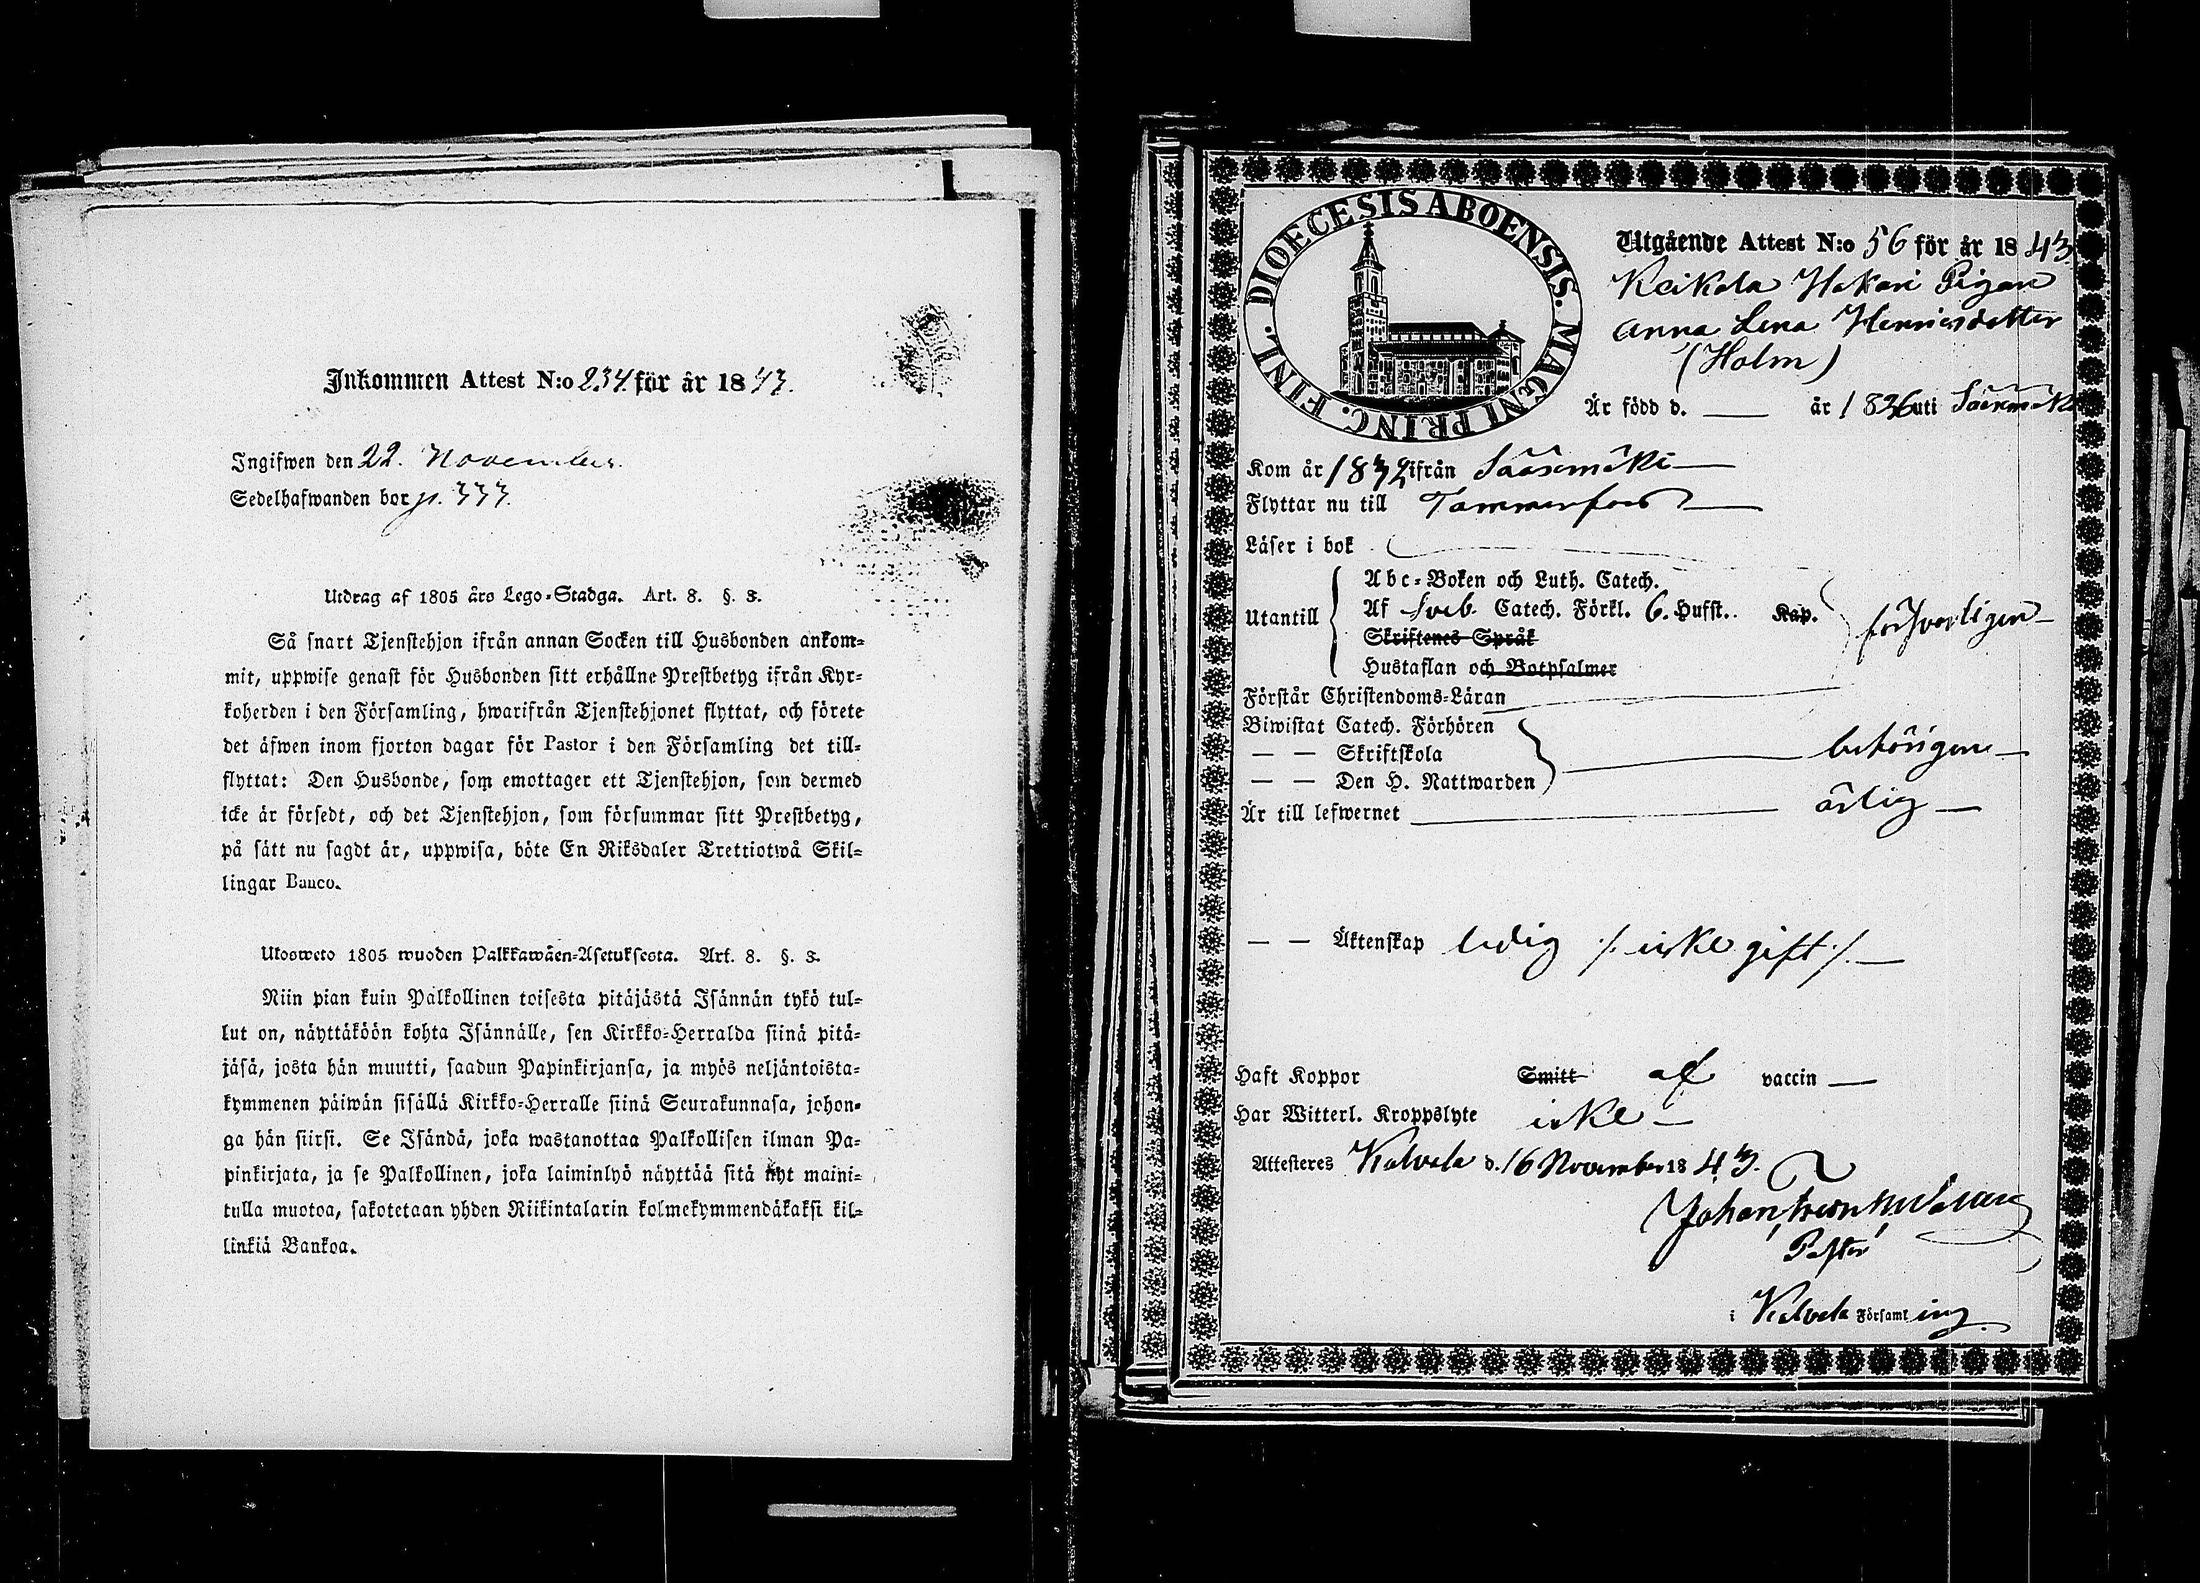 Inkommen Attest N:o 234. för år 1843.
Ingifwen den 22. November.
Sedelhafwanden bor p. 333.
Utdrag af 1805 års Lego-Stadga. Art. 8. §. 3.
Så snart Tjenstehjon ifrån annan Socken till Husbonden ankom-
mit, uppwise genast för Husbonden sitt erhållne Prestbetyg ifrån Kyr-
koherden i den Församling, hwarifrån Tjenstehjonet flyttat, och förete
det äfwen inom fjorton dagar för Pastor i den Församling det till-
flyttat: Den Husbonde, som emottager ett Tjenstehjon, som dermed
icke är försedt, och det Tjenstehjon, som försummar sitt Prestbetyg,
på sätt nu sagdt är, uppwisa, böte En Riksdaler Trettiotwå Skil-
lingar Banco.
Ulosweto 1805 wuoden Palkkawäen-Asetuksesta. Art. 8. §. 3.
Niin pian kuin Palkollinen toisesta pitäjästä Isännän tykö tul-
lut on, näyttäköön kohta Isännälle, sen Kirkko-Herralda siinä pitä-
jäsä, josta hän muutti, saadun Papinkirjansa, ja myös neljäntoista-
kymmenen päiwän sisällä Kirkko-Herralle siinä Seurakunnasa, johon-
ga hän siirsi. Se Isändä, joka wastanottaa Palkollisen ilman Pa-
pinkirjata, ja se Palkollinen, joka laiminlyö näyttää sitä nyt maini-
tulla muotoa, sakotetaan yhden Riikintalarin kolmekymmendäkaksi kil-
linkiä Bankoa.
DIOECESIS ABOENSIS. MAGNI PRINC. FINL.
Utgående Attest N:o 56 för år 1843
Keikala Hakari Pigan
Anna Lena Henricsdotter
(Holm)
Är född d. — år 1826 uti Sääxmäki
Kom år 1832 ifrån Sääxmäki —
Flyttar nu till Tammerfors —
Läser i bok
Utantill
Abc-Boken och Luth. Catech.
Af Sveb. Catech. Förkl. 6. Hufst. Kap. försvarligen —
Skriftenes Språk
Hustaflan och Botpsalmer
Förstår Christendoms-Läran
Biwistat Catech. Förhören
— — Skriftskola behörigen —
— — Den H. Nattwarden
Är till lefwernet ärlig —
— — Äktenskap ledig /. icke gift ./. —
Haft Koppor Smitt af vaccin —
Har Witterl. Kroppslyte icke —
Attesteres Kalvola d. 16 November 1843.
Johan
Pastor
i Kalvola Församling.